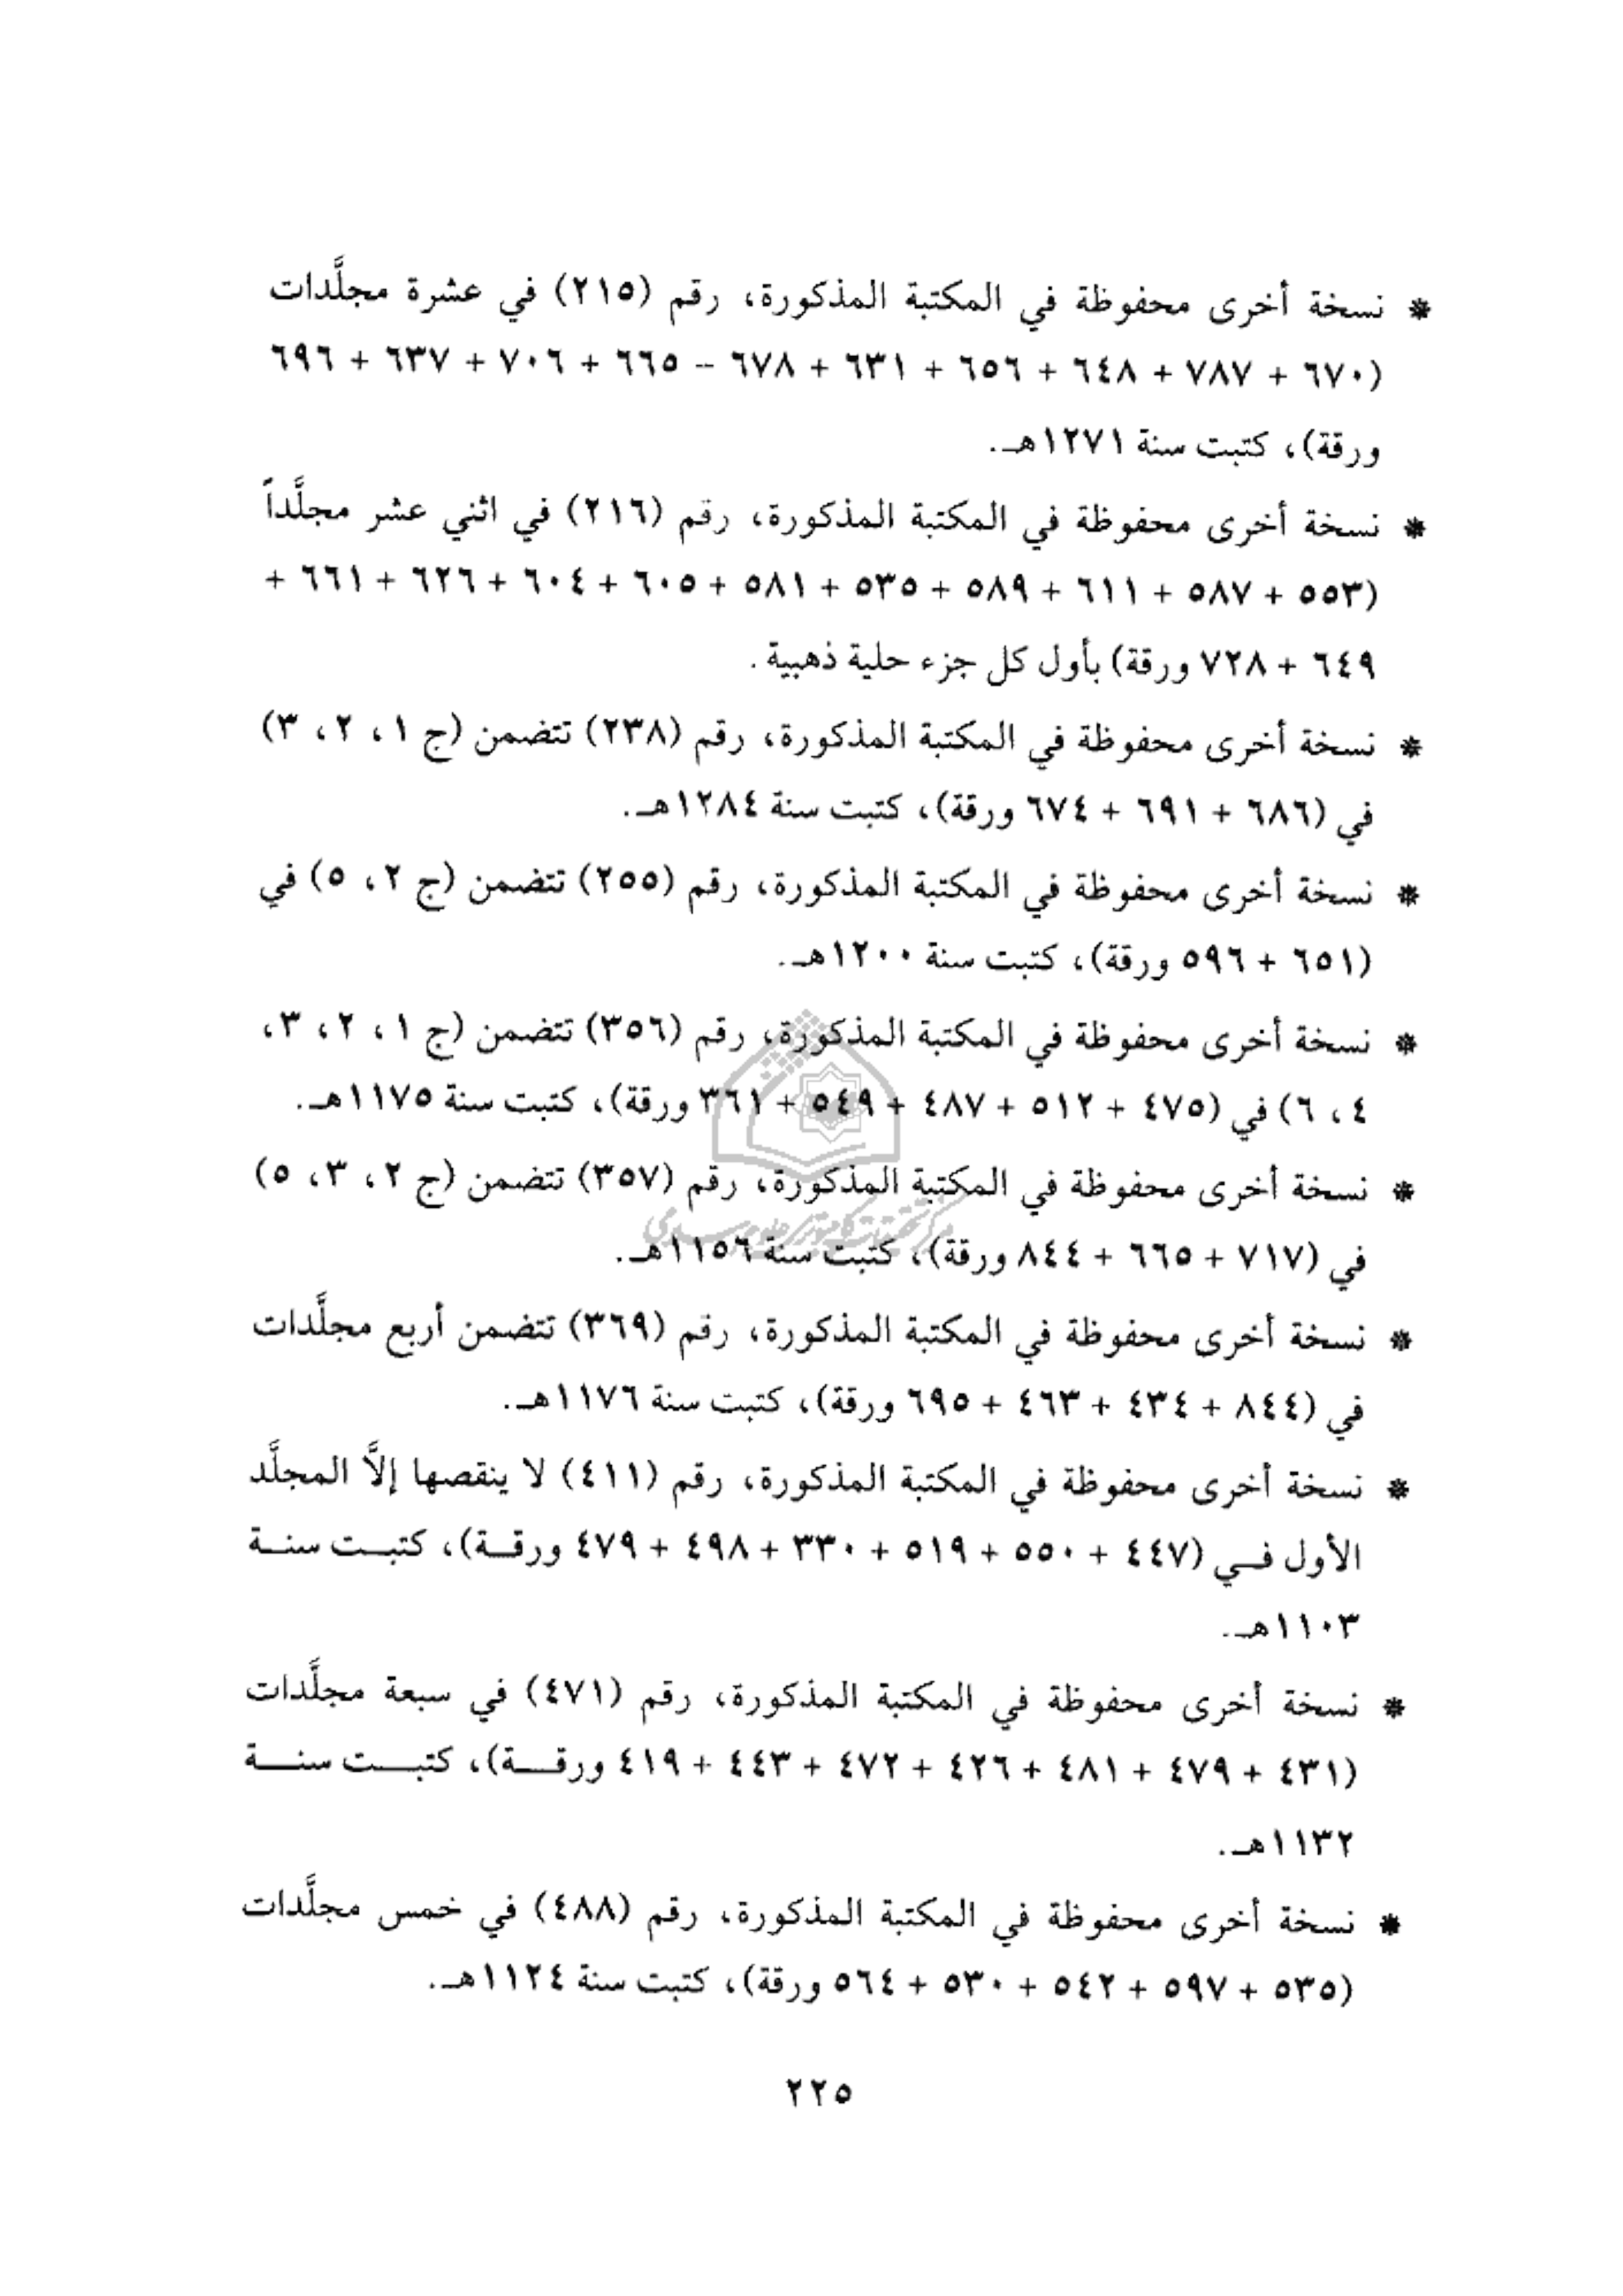 * نسخة أخرى محفوظة في المكتبة المذكورة، رقم (٢١٥) في عشرة مجلَّدات
(٦٧٠ + ٧٨٧ + ٦٤٨ + ٦٥٦ + ٦٣١ + ٦٧٨ – ٦٦٥ + ٧٠٦ + ٦٣٧ + ٦٩٦
ورقة)، كتبت سنة ١٢٧١هـ.
* نسخة أخرى محفوظة في المكتبة المذكورة، رقم (٢١٦) في اثني عشر مجلَّداً
(٥٥٣ + ٥٨٧ + ٦١١ + ٥٨٩ + ٥٣٥ + ٥٨١ + ٦٠٥ + ٦٠٤ + ٦٢٦ + ٦٦١ +
٦٤٩ + ٧٢٨ ورقة) بأول كل جزء حلية ذهبية.
* نسخة أخرى محفوظة في المكتبة المذكورة، رقم (٢٣٨) تتضمن (ج ١، ٢، ٣)
في (٦٨٦ + ٦٩١ + ٦٧٤ ورقة)، كتبت سنة ١٢٨٤هـ.
* نسخة أخرى محفوظة في المكتبة المذكورة، رقم (٢٥٥) تتضمن (ج ٢، ٥) في
(٦٥١ + ٥٩٦ ورقة)، كتبت سنة ١٢٠٠هـ.
* نسخة أخرى محفوظة في المكتبة المذكورة، رقم (٣٥٦) تتضمن (ج ١، ٢، ٣،
٤، ٦) في (٤٧٥ + ٥١٢ + ٤٨٧ + ٥٤٩ + ٣٦١ ورقة)، كتبت سنة ١١٧٥هـ.
* نسخة أخرى محفوظة في المكتبة المذكورة، رقم (٣٥٧) تتضمن (ج ٢، ٣، ٥)
في (٧١٧ + ٦٦٥ + ٨٤٤ ورقة)، كتبت سنة ١١٥٦هـ.
* نسخة أخرى محفوظة في المكتبة المذكورة، رقم (٣٦٩) تتضمن أربع مجلَّدات
في (٨٤٤ + ٤٣٤ + ٤٦٣ + ٦٩٥ ورقة)، كتبت سنة ١١٧٦هـ.
* نسخة أخرى محفوظة في المكتبة المذكورة، رقم (٤١١) لا ينقصها إلاَّ المجلَّد
الأول فـي (٤٤٧ + ٥٥٠ + ٥١٩ + ٣٣٠ + ٤٩٨ + ٤٧٩ ورقـة)، كتبـت سنـة
١١٠٣هـ.
* نسخة أخرى محفوظة في المكتبة المذكورة، رقم (٤٧١) في سبعة مجلَّدات
(٤٣١ + ٤٧٩ + ٤٨١ + ٤٢٦ + ٤٧٢ + ٤٤٣ + ٤١٩ ورقـة)، كتبـت سنـة
١١٣٢هـ.
* نسخة أخرى محفوظة في المكتبة المذكورة، رقم (٤٨٨) في خمس مجلَّدات
(٥٣٥ + ٥٩٧ + ٥٤٢ + ٥٣٠ + ٥٦٤ ورقة)، كتبت سنة ١١٢٤هـ.
٢٢٥